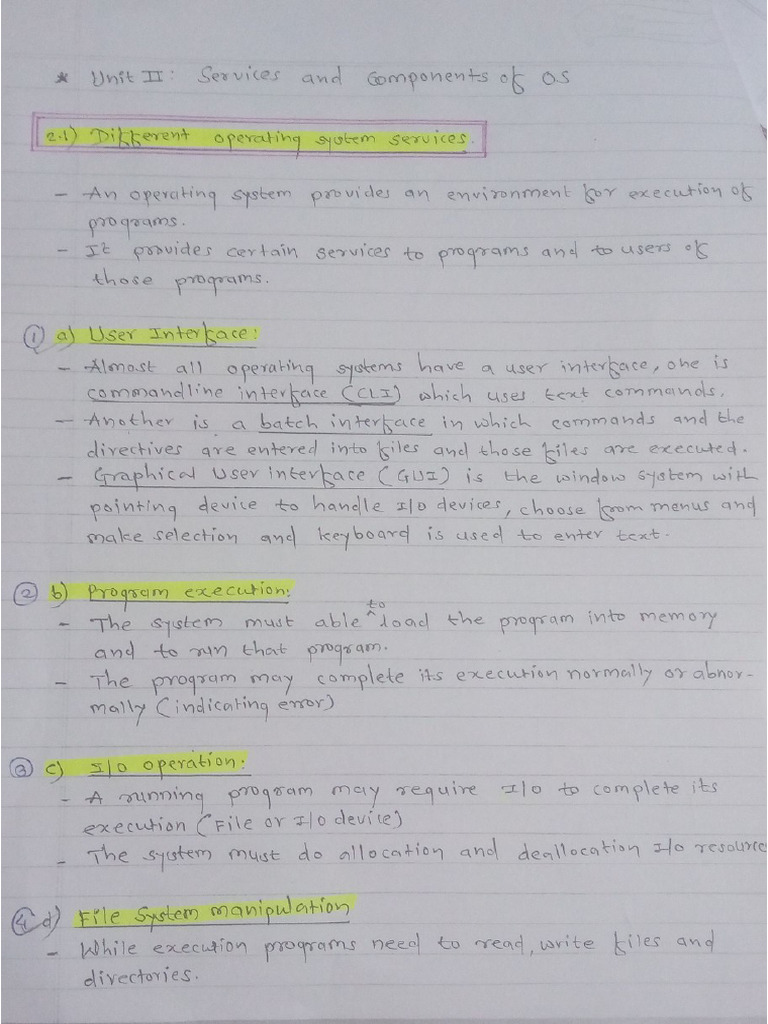 * Unit II: Services and Components of O.S
2.1) Different operating system services.
- An operating system provides an environment for execution of
programs.
- It provides certain services to programs and to users of
those programs.
① a) User Interface:
- Almost all operating systems have a user interface, one is
commandline interface (CLI) which uses text commands.
- Another is a batch interface in which commands and the
directives are entered into files and those files are executed.
- Graphical User interface (GUI) is the window system with
pointing device to handle I/O devices, choose from menus and
make selection and keyboard is used to enter text.
② b) Program execution:
- The system must able ^to load the program into memory
and to run that program.
- The program may complete its execution normally or abnor-
mally (indicating error)
③ c) I/O operation:
- A running program may require I/O to complete its
execution (File or I/O device)
- The system must do allocation and deallocation I/o resource
④ d) File System manipulation
- While execution programs need to read, write files and
directories.